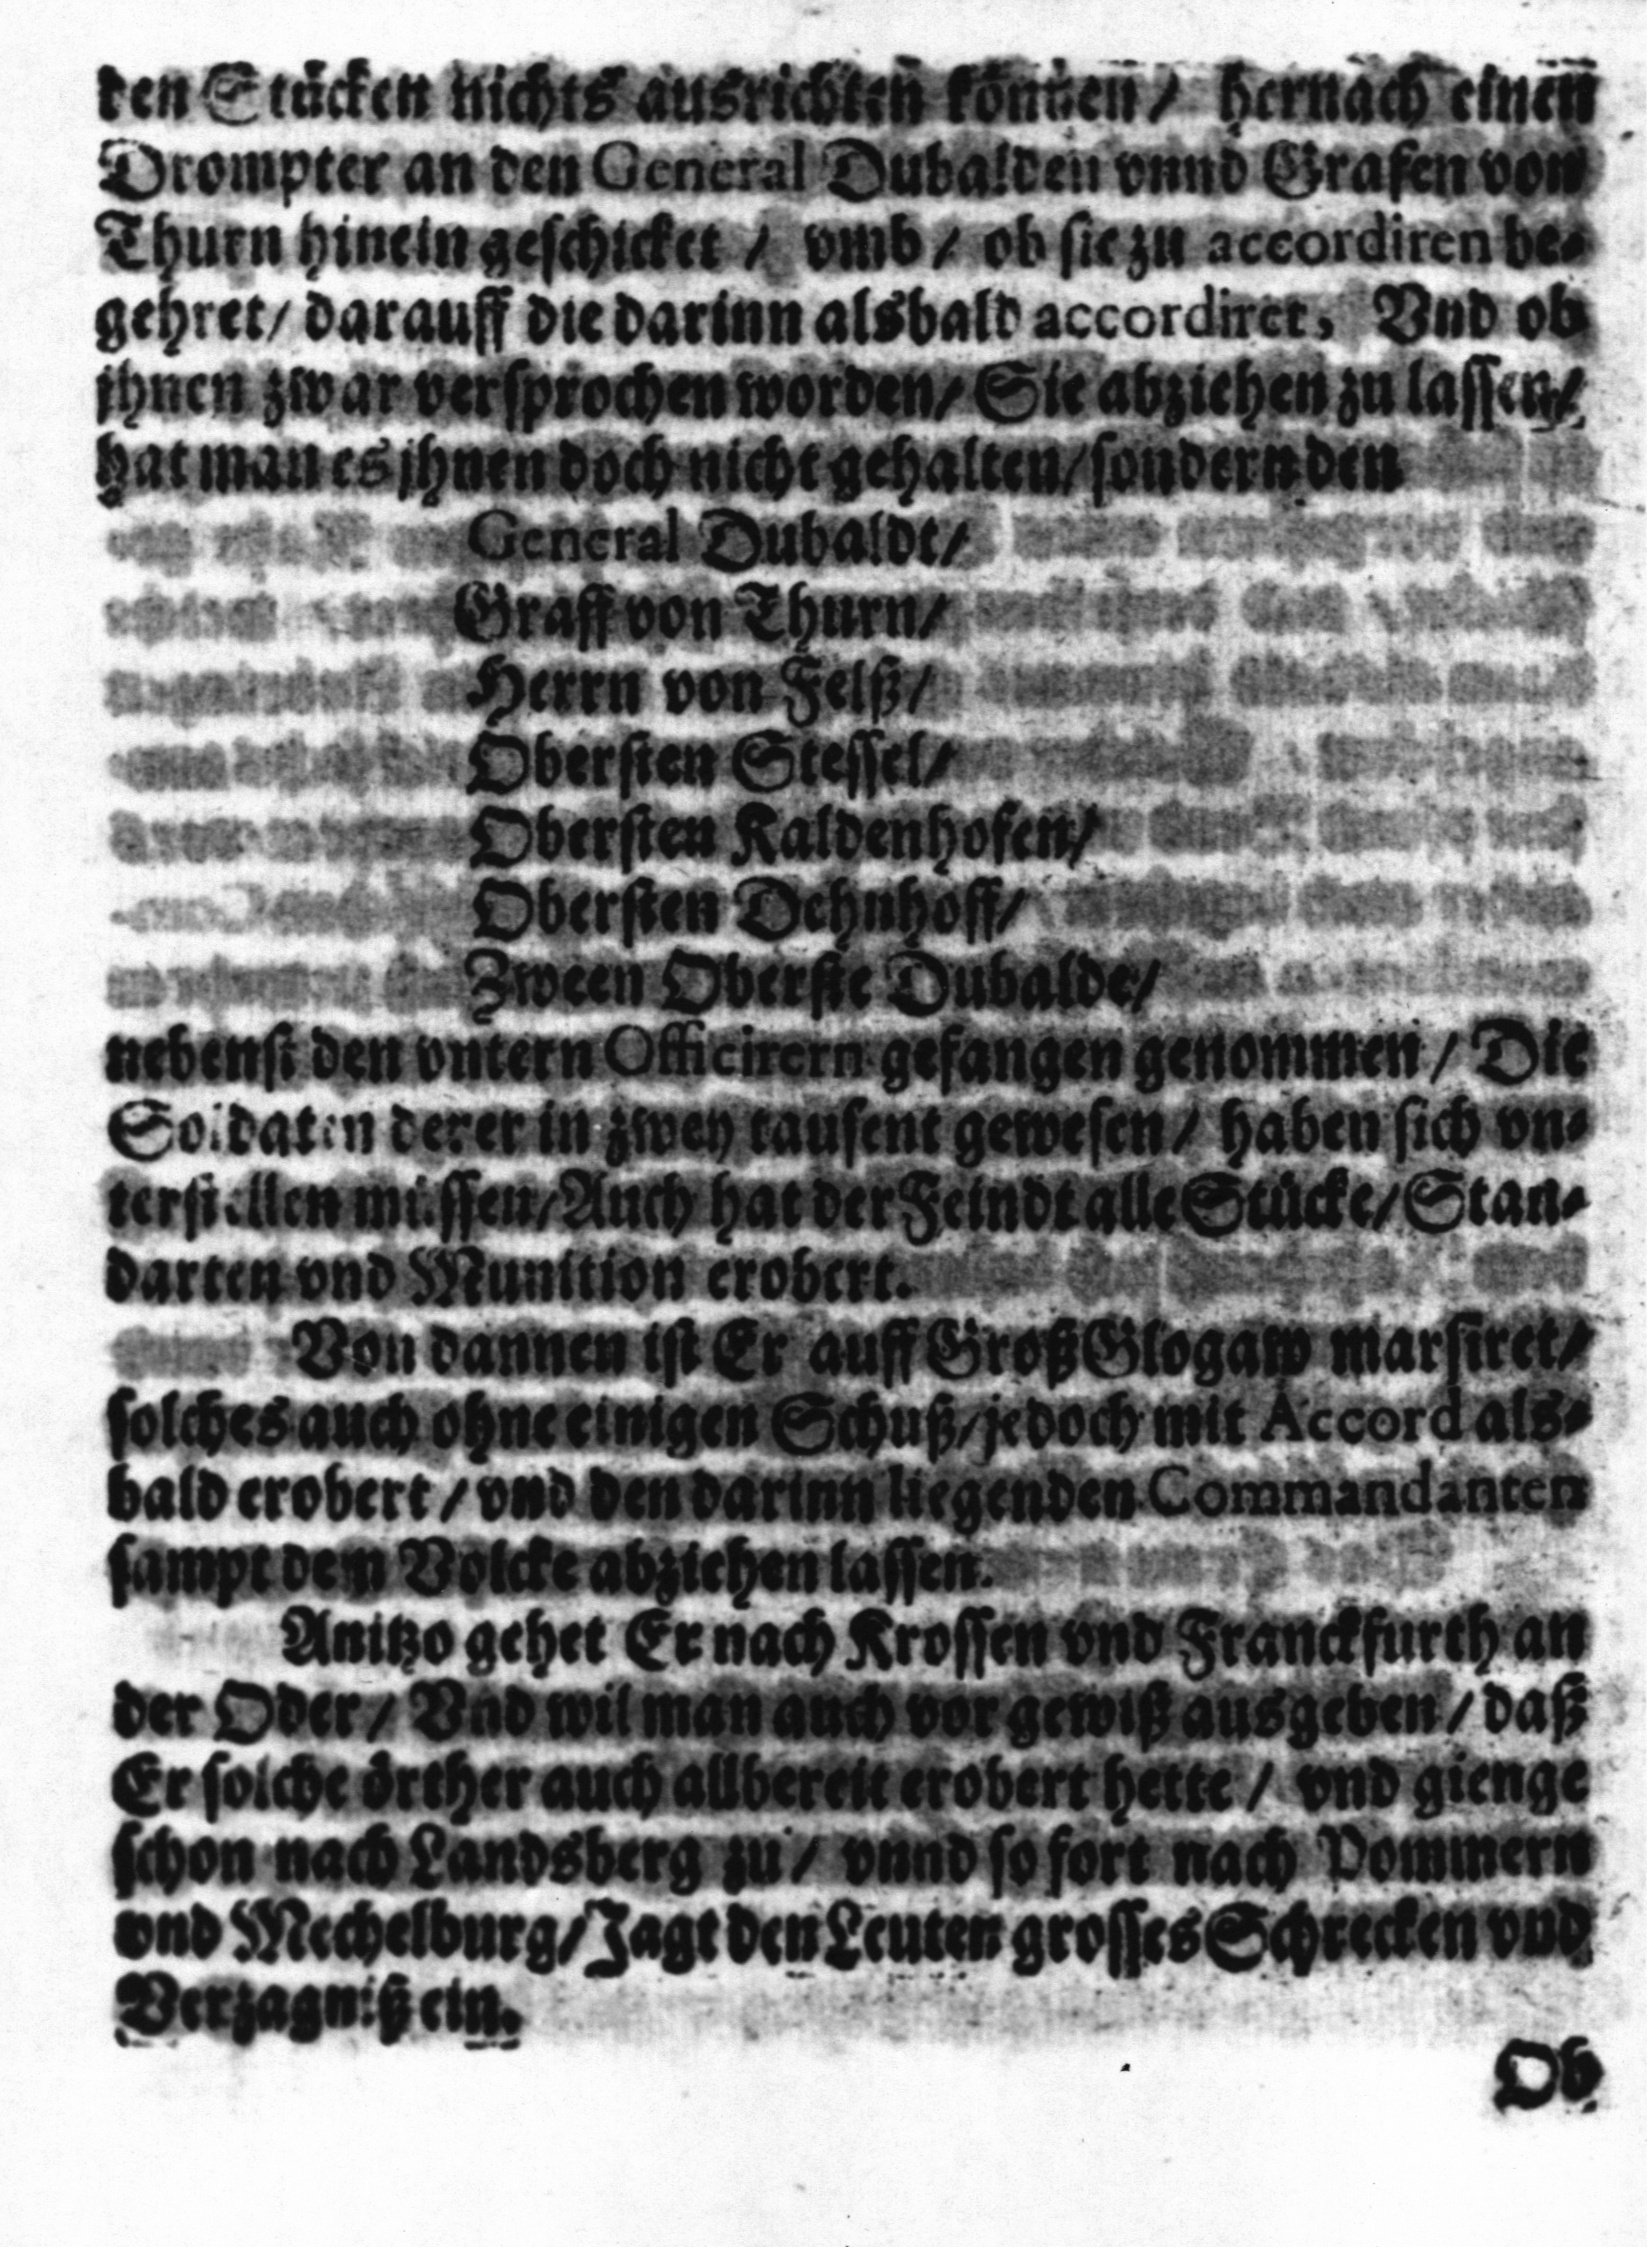 den Stücken nichts ausrichten können / hernach einen
Drompter an den General Dubalden vnnd Grafen von
Thurn hinein geschicket / vmb / ob sie zu accordiren be-
gehret / darauff die darinn alsbald accordiret, Vnd ob
jhnen zwar versprochen worden / Sie abziehen zu lassen /
hat man es jhnen doch nicht gehalten / sondern den
General Dubaldt /
Graff von Thurn /
Herrn von Felß /
Obersten Stessel /
Obersten Kaldenhofen /
Obersten Dehnhoff /
Zween Oberste Dubalde /
nebenst den vntern Officirern gefangen genommen / Die
Soldaten derer in zwey tausent gewesen / haben sich vn-
terstellen müssen / Auch hat der Feindt alle Stücke / Stan-
darten vnd Munition erobert.
Von dannen ist Er auff Groß Glogaw marsiret /
solches auch ohne einigen Schuß / jedoch mit Accord als-
bald erobert / vnd den darinn liegenden Commandanten
sampt dem Volcke abziehen lassen.
Anitzo gehet Er nach Krossen vnd Franckfurth an
der Oder / Vnd wil man auch vor gewiß ausgeben / daß
Er solche örther auch allbereit erobert hette / vnd gienge
schon nach Landsberg zu / vnnd so fort nach Pommern
vnd Mechelburg / Jagt den Leuten grosses Schrecken vnd
Verzagniß ein.
Ob